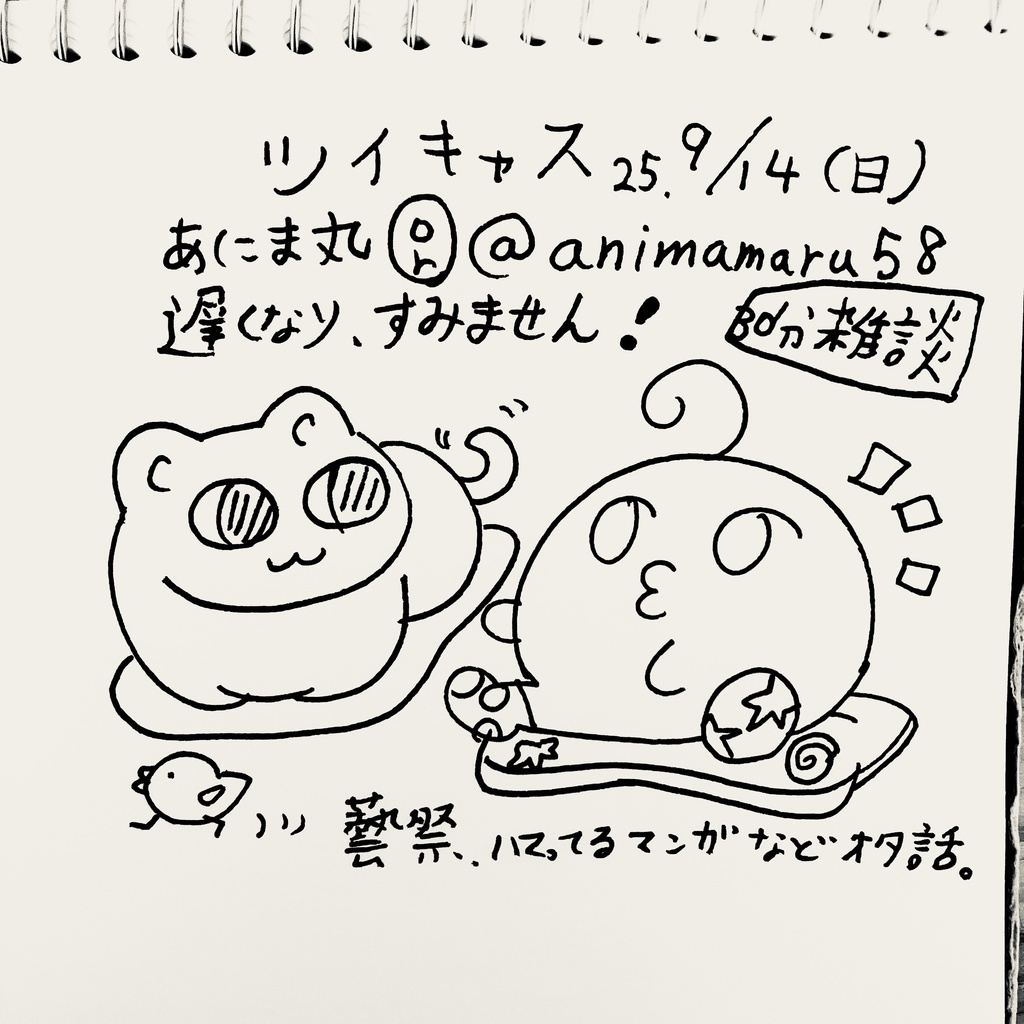 ツイキャス 25.9/14(日)
あにま丸 or @animamaru58
遅くなり、すみません!
30分雑談
藝祭、ハマってるマンガなどオタ話。